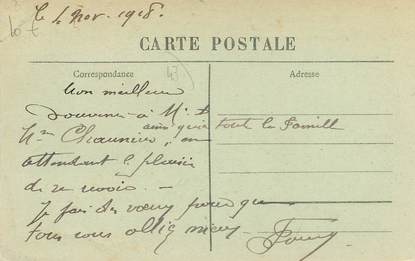 le 4 Nov. 1918.
CARTE POSTALE
Correspondance
Adresse
Mon meilleur
Souvenir à Mr &
Mme Chaunier, ainsi qu'à toute la famill
en
attendant le plaisir
de se revoir. —
Je fais des voeux pour que
tous vous